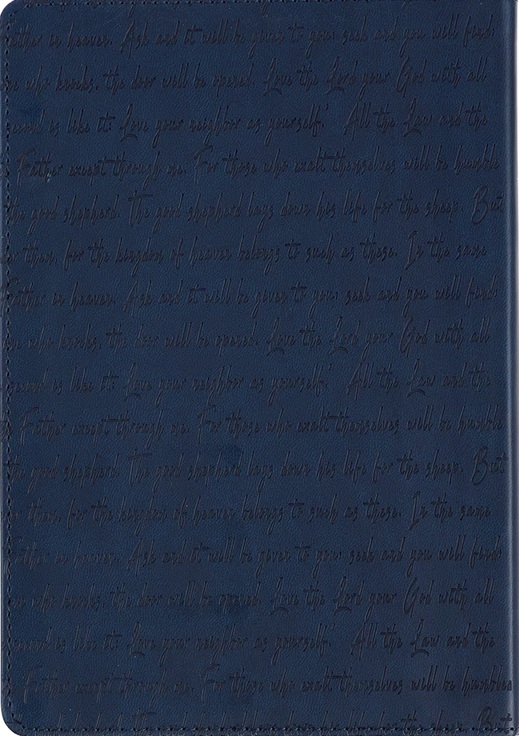 Father in heaven. Ask and it will be given to you; seek and you will find;
one who knocks, the door will be opened. Love the Lord your God with all
second is like it: Love your neighbor as yourself.' All the Law and the
Father except through me. For those who exalt themselves will be humbled
the good shepherd. The good shepherd lays down his life for the sheep. But
them, for the kingdom of heaven belongs to such as these. In the same
Father in heaven. Ask and it will be given to you; seek and you will find;
one who knocks, the door will be opened. Love the Lord your God with all
second is like it: Love your neighbor as yourself.' All the Law and the
Father except through me. For those who exalt themselves will be humbled
the good shepherd. The good shepherd lays down his life for the sheep. But
them, for the kingdom of heaven belongs to such as these. In the same
Father in heaven. Ask and it will be given to you; seek and you will find;
one who knocks, the door will be opened. Love the Lord your God with all
second is like it: Love your neighbor as yourself.' All the Law and the
Father except through me. For those who exalt themselves will be humbled
for the sheep. But